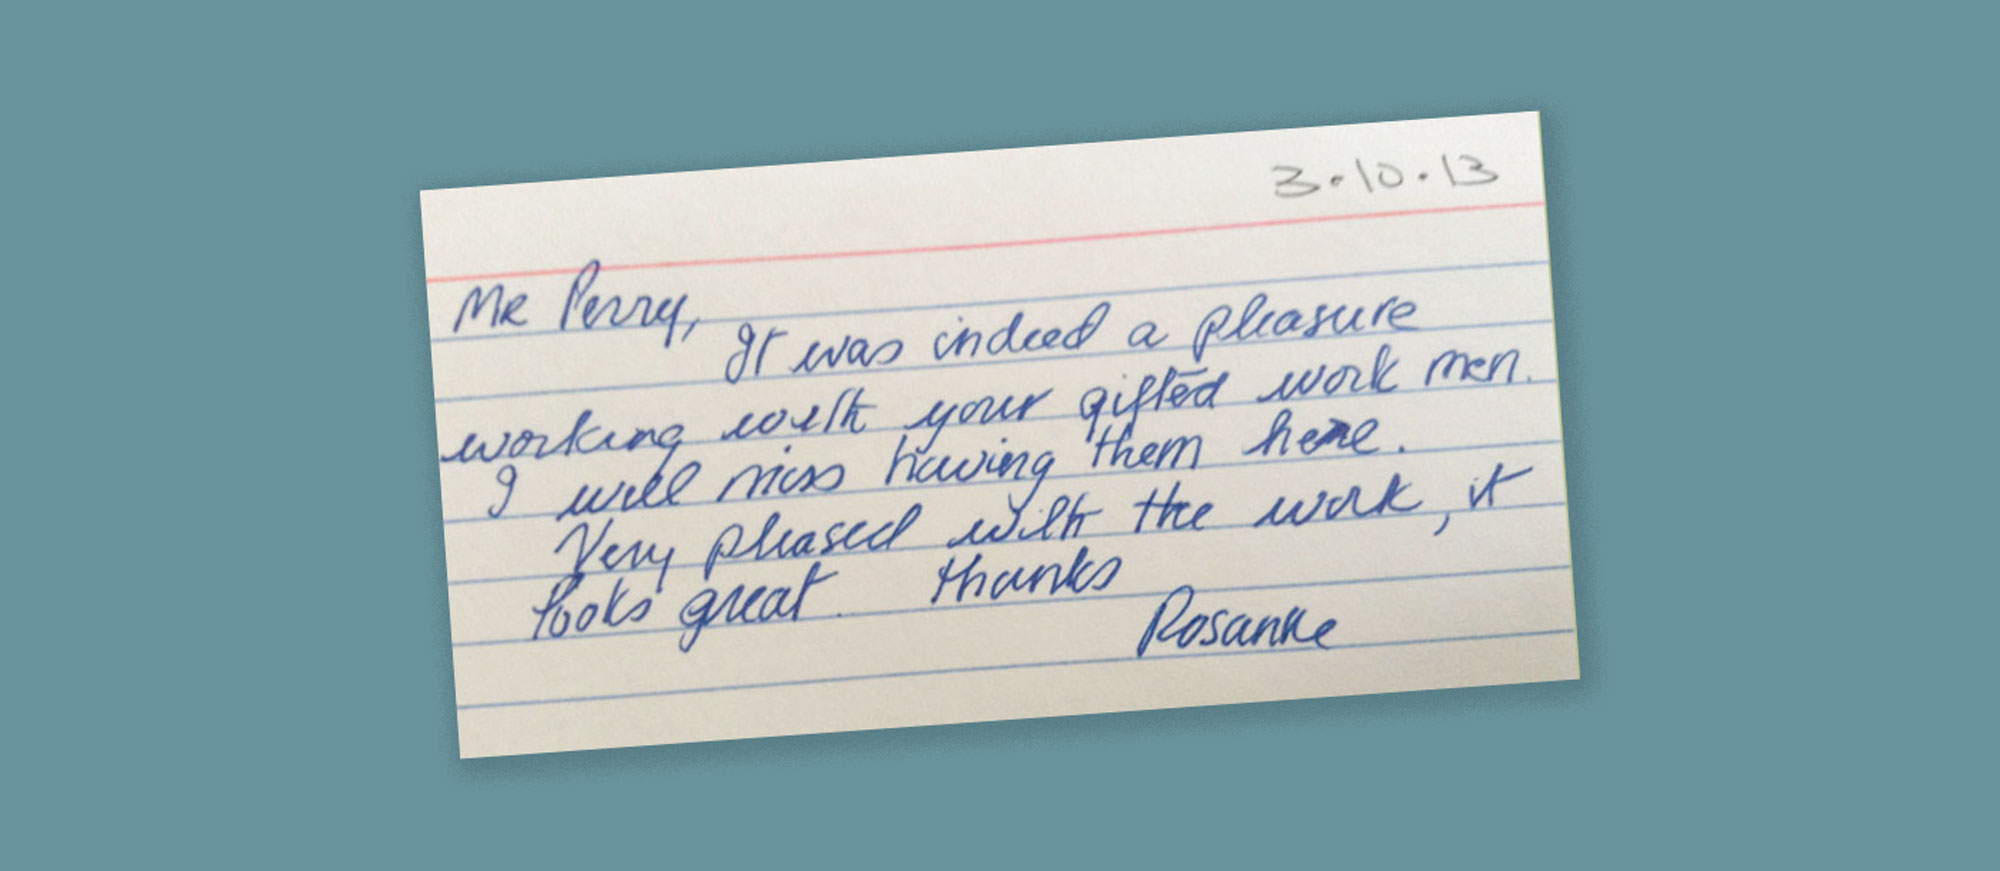 3.10.13
Mr Perry,
It was indeed a pleasure
working with your gifted work men.
I will miss having them here.
Very pleased with the work, it
looks great. thanks
Rosanne